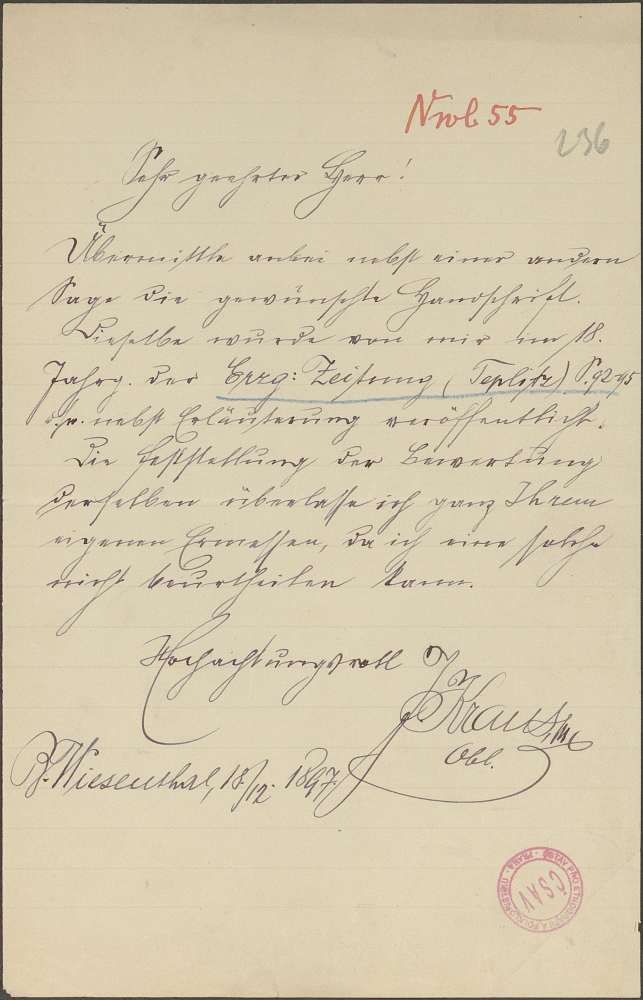 Nrol 55
236
Sehr geehrter Herr!
Übermittle anbei nebst einer andern
Sage die gewünschte Handschrift.
Dieselbe wurde von mir im 18.
Jahrg. der Erzg: Zeitung (Teplitz) S. 92-95
nebst Erläuterung veröffentlicht.
Die Feststellung der Bewertung
derselben überlasse ich ganz Ihrem
eigenen Ermessen, da ich eine solche
nicht beurtheilen kann.
Hochachtungsvoll
J Kraus
Obl.
B. Wiesenthal, 18/12. 1897.
ČSAV
ÚSTAV PRO ETNOGRAFII A FOLKLORISTIKU · PRAHA ·